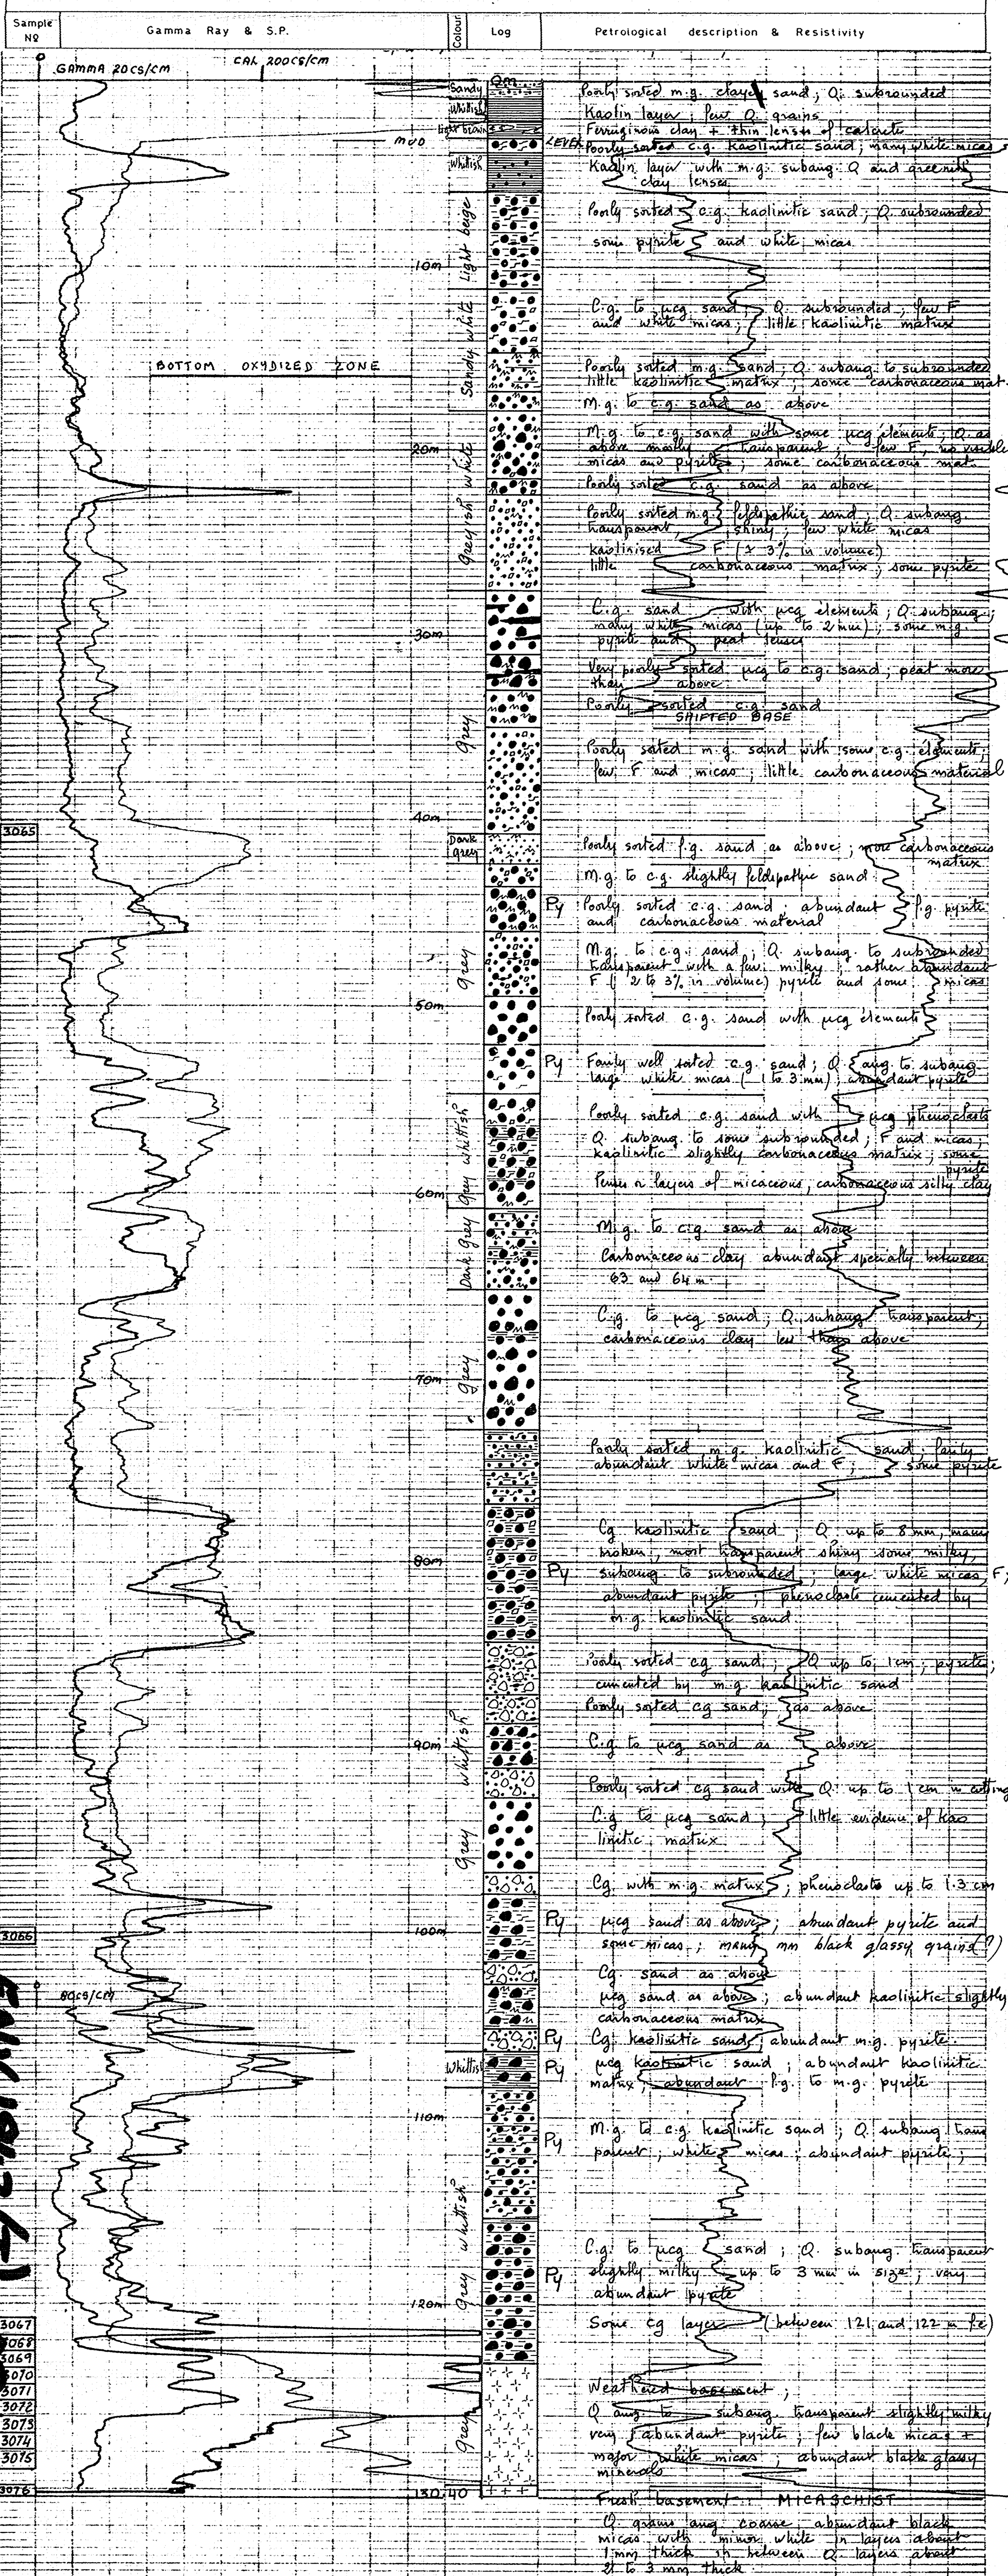 Sample Nº
Gamma Ray & S.P.
Colour
Log
Petrological description & Resistivity
0
GAMMA 20CS/CM
CAL 200CS/CM
0m
Sandy
Poorly sorted m.g. clayey sand; Q. subrounded
Whitish
Kaolin layer; few Q. grains
Light brown
Ferruginous clay + thin lenses of calcrete
MUD
LEVEL
Poorly sorted c.g. kaolinitic sand; many white micas
Whitish
Kaolin layer with m.g. subang. Q and greenish
clay lenses
Light beige
Poorly sorted c.g. kaolinitic sand; Q. subrounded
some pyrite and white micas
10m
Sandy white
C.g. to µcg sand; Q. subrounded; few F
and white micas; little kaolinitic matrix
BOTTOM OXYDIZED ZONE
Poorly sorted m.g. sand; Q. subang to subrounded
little kaolinitic matrix; some carbonaceous mat.
M.g. to c.g. sand as above
Greyish white
M.g. to c.g. sand with some µcg elements; Q. as
above mostly transparent; few F, no visible
micas and pyrite; some carbonaceous mat.
20m
Poorly sorted c.g. sand as above
Poorly sorted m.g. feldspathic sand; Q. subang.
transparent, shiny; few white micas
kaolinised F (± 3% in volume)
little carbonaceous matrix; some pyrite
Grey
C.g. sand with µcg elements; Q. subang;
many white micas (up to 2mm); some m.g.
pyrite and peat lenses
30m
Very poorly sorted µcg to c.g. sand; peat more
than above
Poorly sorted c.g. sand
SHIFTED BASE
Poorly sorted m.g. sand with some c.g. elements;
few F and micas; little carbonaceous material
40m
3065
Dark grey
Poorly sorted f.g. sand as above; more carbonaceous
matrix
M.g. to c.g. slightly feldspathic sand
Py
Poorly sorted c.g. sand; abundant f.g. pyrite
and carbonaceous material
Grey
M.g. to c.g. sand; Q. subang. to subrounded
transparent with a few milky; rather abundant
F (2 to 3% in volume) pyrite and some micas
50m
Poorly sorted c.g. sand with µcg elements
Py
Fairly well sorted c.g. sand; Q. ang. to subang.
large white micas (1 to 3 mm); abundant pyrite
Grey whitish
Poorly sorted c.g. sand with µcg phenoclasts
Q. subang. to some subrounded; F and micas;
kaolinitic slightly carbonaceous matrix; some
pyrite
Lenses n layers of micaceous, carbonaceous silty clay
60m
Dark Grey
M.g. to c.g. sand as above
Carbonaceous clay abundant specially between
63 and 64 m
Grey
C.g. to µcg sand; Q. subang. transparent;
carbonaceous clay less than above
70m
Poorly sorted m.g. kaolinitic sand, fairly
abundant white micas and F; some pyrite
80m
Py
Cg kaolinitic sand; Q up to 8 mm, many
broken, most transparent shiny some milky,
subang to subrounded; large white micas, F;
abundant pyrite; phenoclasts cemented by
m.g. kaolinitic sand
Poorly sorted cg sand; Q up to 1cm; pyrite;
cemented by m.g. kaolinitic sand
Poorly sorted cg sand; as above
Grey whitish
90m
C.g. to µcg sand as above
Poorly sorted cg sand with Q. up to 1 cm in cutting
C.g. to µcg sand; little evidence of kao
linitic matrix
Cg. with m.g. matrix; phenoclasts up to 1.3 cm
3066
100m
Py
µcg sand as above; abundant pyrite and
some micas; many mm black glassy grains(?)
Cg. sand as above
0
80CS/CM
µcg sand as above; abundant kaolinitic slightly
carbonaceous matrix
Py
Cg. kaolinitic sand; abundant m.g. pyrite.
Whitish
Py
µcg kaolinitic sand; abundant kaolinitic
matrix; abundant f.g. to m.g. pyrite
110m
Py
M.g. to c.g. kaolinitic sand; Q. subang trans
parent; white micas; abundant pyrite;
Grey whitish
Py
C.g. to µcg sand; Q. subang. transparent
slightly milky up to 3 mm in size; very
abundant pyrite
120m
Some cg layer (between 121 and 122 m f.e)
3067
3068
3069
3070
3071
3072
3073
3074
3075
Grey
Weathered basement;
Q ang to subang. transparent slightly milky
very abundant pyrite; few black micas +
major white micas; abundant black glassy
minerals
3076
130.40
Fresh basement: MICASCHIST
Q. grains ang coarse, abundant black
micas with minor white in layers about
1mm thick in between Q. layers about
2 to 3 mm thick